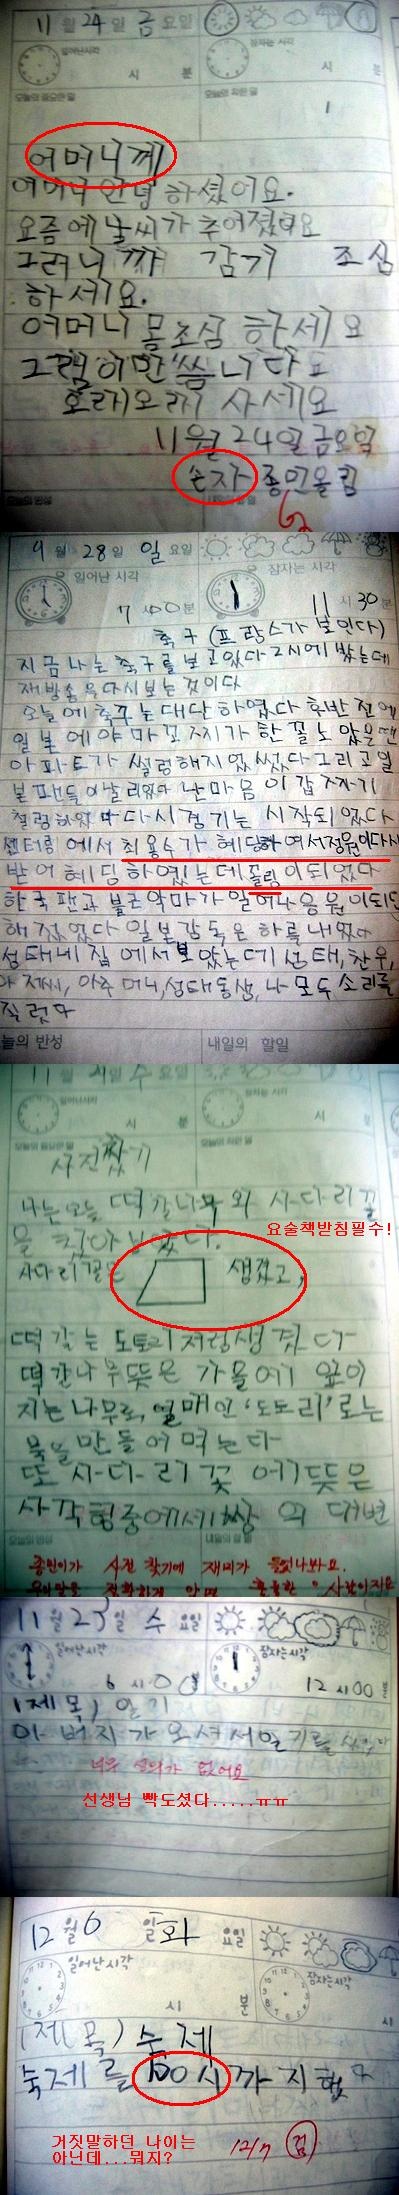 11월 24일 금요일
일어난시각
잠자는 시각
시 분
시 분
오늘의 중요한 일
오늘의 착한 일
어머니께
어머니 안녕 하셨어요.
요즘에 날씨가 추어졌어요
그러니까 감기 조심
하세요.
어머니 몸조심 하세요
그럼이만씀니다
오래오래 사세요
11월 24일 금요일
손자 종민올림
9월 28일 일요일
일어난 시각
잠자는 시각
7시00분
11시 30분
축구 (프랑스가 보인다)
지금 나는 축구를 보고있다 2시에 봤는데
재방송을다시보는 것이다
오늘에 축구는 대단하였다 후반전에
일본에야마꼬지가 한꼴노았을땐
아파트가 썰렁해지었었다 그리고일
본팬들이날리였다 난마음이갑자기
철렁하였다 다시경기는 시작되었다
센터링에서 최용수가 헤딩하여서정원이다시
받어 헤딩하였는데 꼴링이되었다
한국팬과 붉근악마가일어나응원이되단
해졌었다 일본감독은 하를내였다
성태네집에서보았는데 성태,찬우,
아저씨,아주머니,성태동생,나 모두소리를
질렀다
늘의 반성
내일의 할일
수요일
일어난시각
잠자는 시각
시 분
시
사전찾기
나는오늘 떡갈나무와 사다리꼴
을 찾아보았다.
요술책받침필수!
사다리꼴은 생겼고,
떡갈는 도토리처럼생겼다
떡갈나무뜻은 가을에 잎이
지는나무로, 열매인 '도토리'로는
묵을만들어먹는다
또사다리꼴에뜻은
사각형중에서한쌍의대변
오늘의 반성
내일의 할일
종민이가 사전 찾기에 재미가 들었나봐요.
11월 23일 수요일
일어난시각
잠자는시각
6시00분
12시00분
(제목) 일기
아버지가오셔서일기를
너무 성의가 없어요
선생님 빡도셨다.....ㅠㅠ
12월 6일 화요일
일어난시각
잠자는시각
시 분
시
(제목) 숙제
숙제를 100시까지했다
거짓말하던 나이는
아닌데...뭐지?
12/7 검